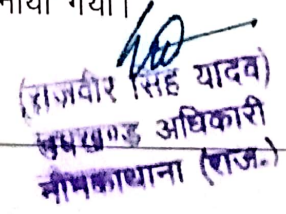 नाया गया।
(राजवीर सिंह यादव)
उपखण्ड अधिकारी
नीमकाथाना (राज.)